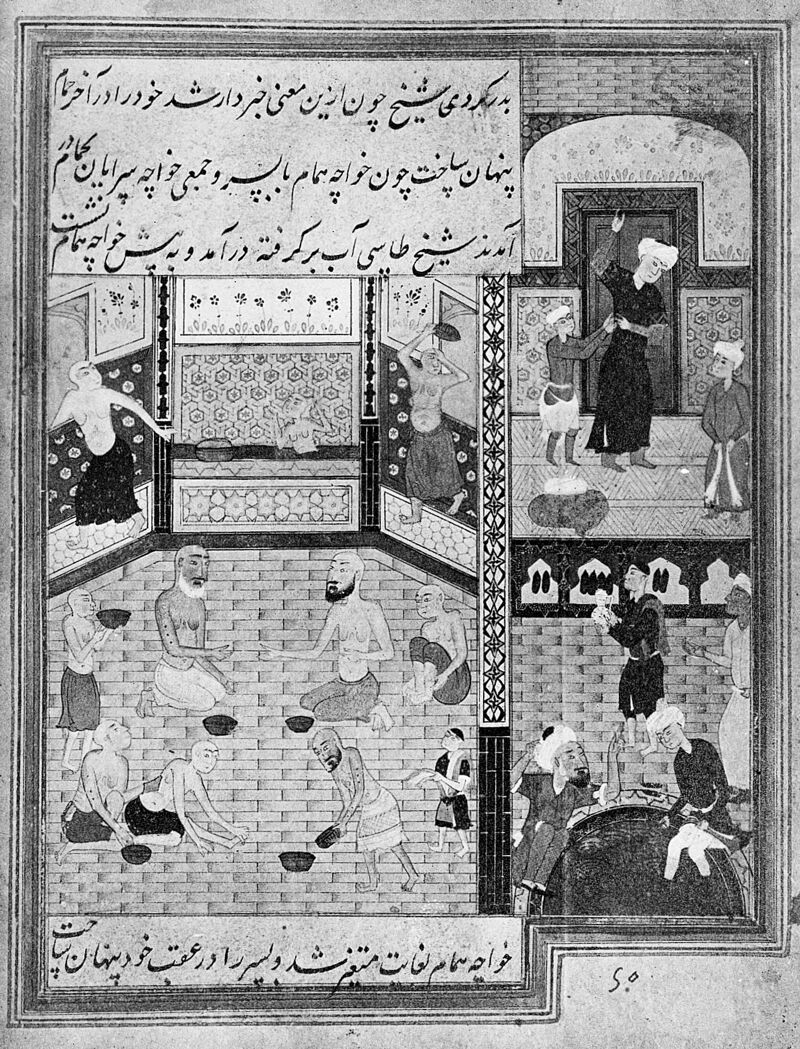 بدر کردی شیخ چون ازین معنی خبردار شد خود را در آخر حمام
پنهان ساخت چون خواجه همام با پسر و جمعی خواجه سرایان بحمام در
آمدند شیخ طاسی آب بر گرفته درآمد و به پیش خواجه همام نشست
خواجه همام بغایت متغیر شد و پسر را در عقب خود پنهان ساخت